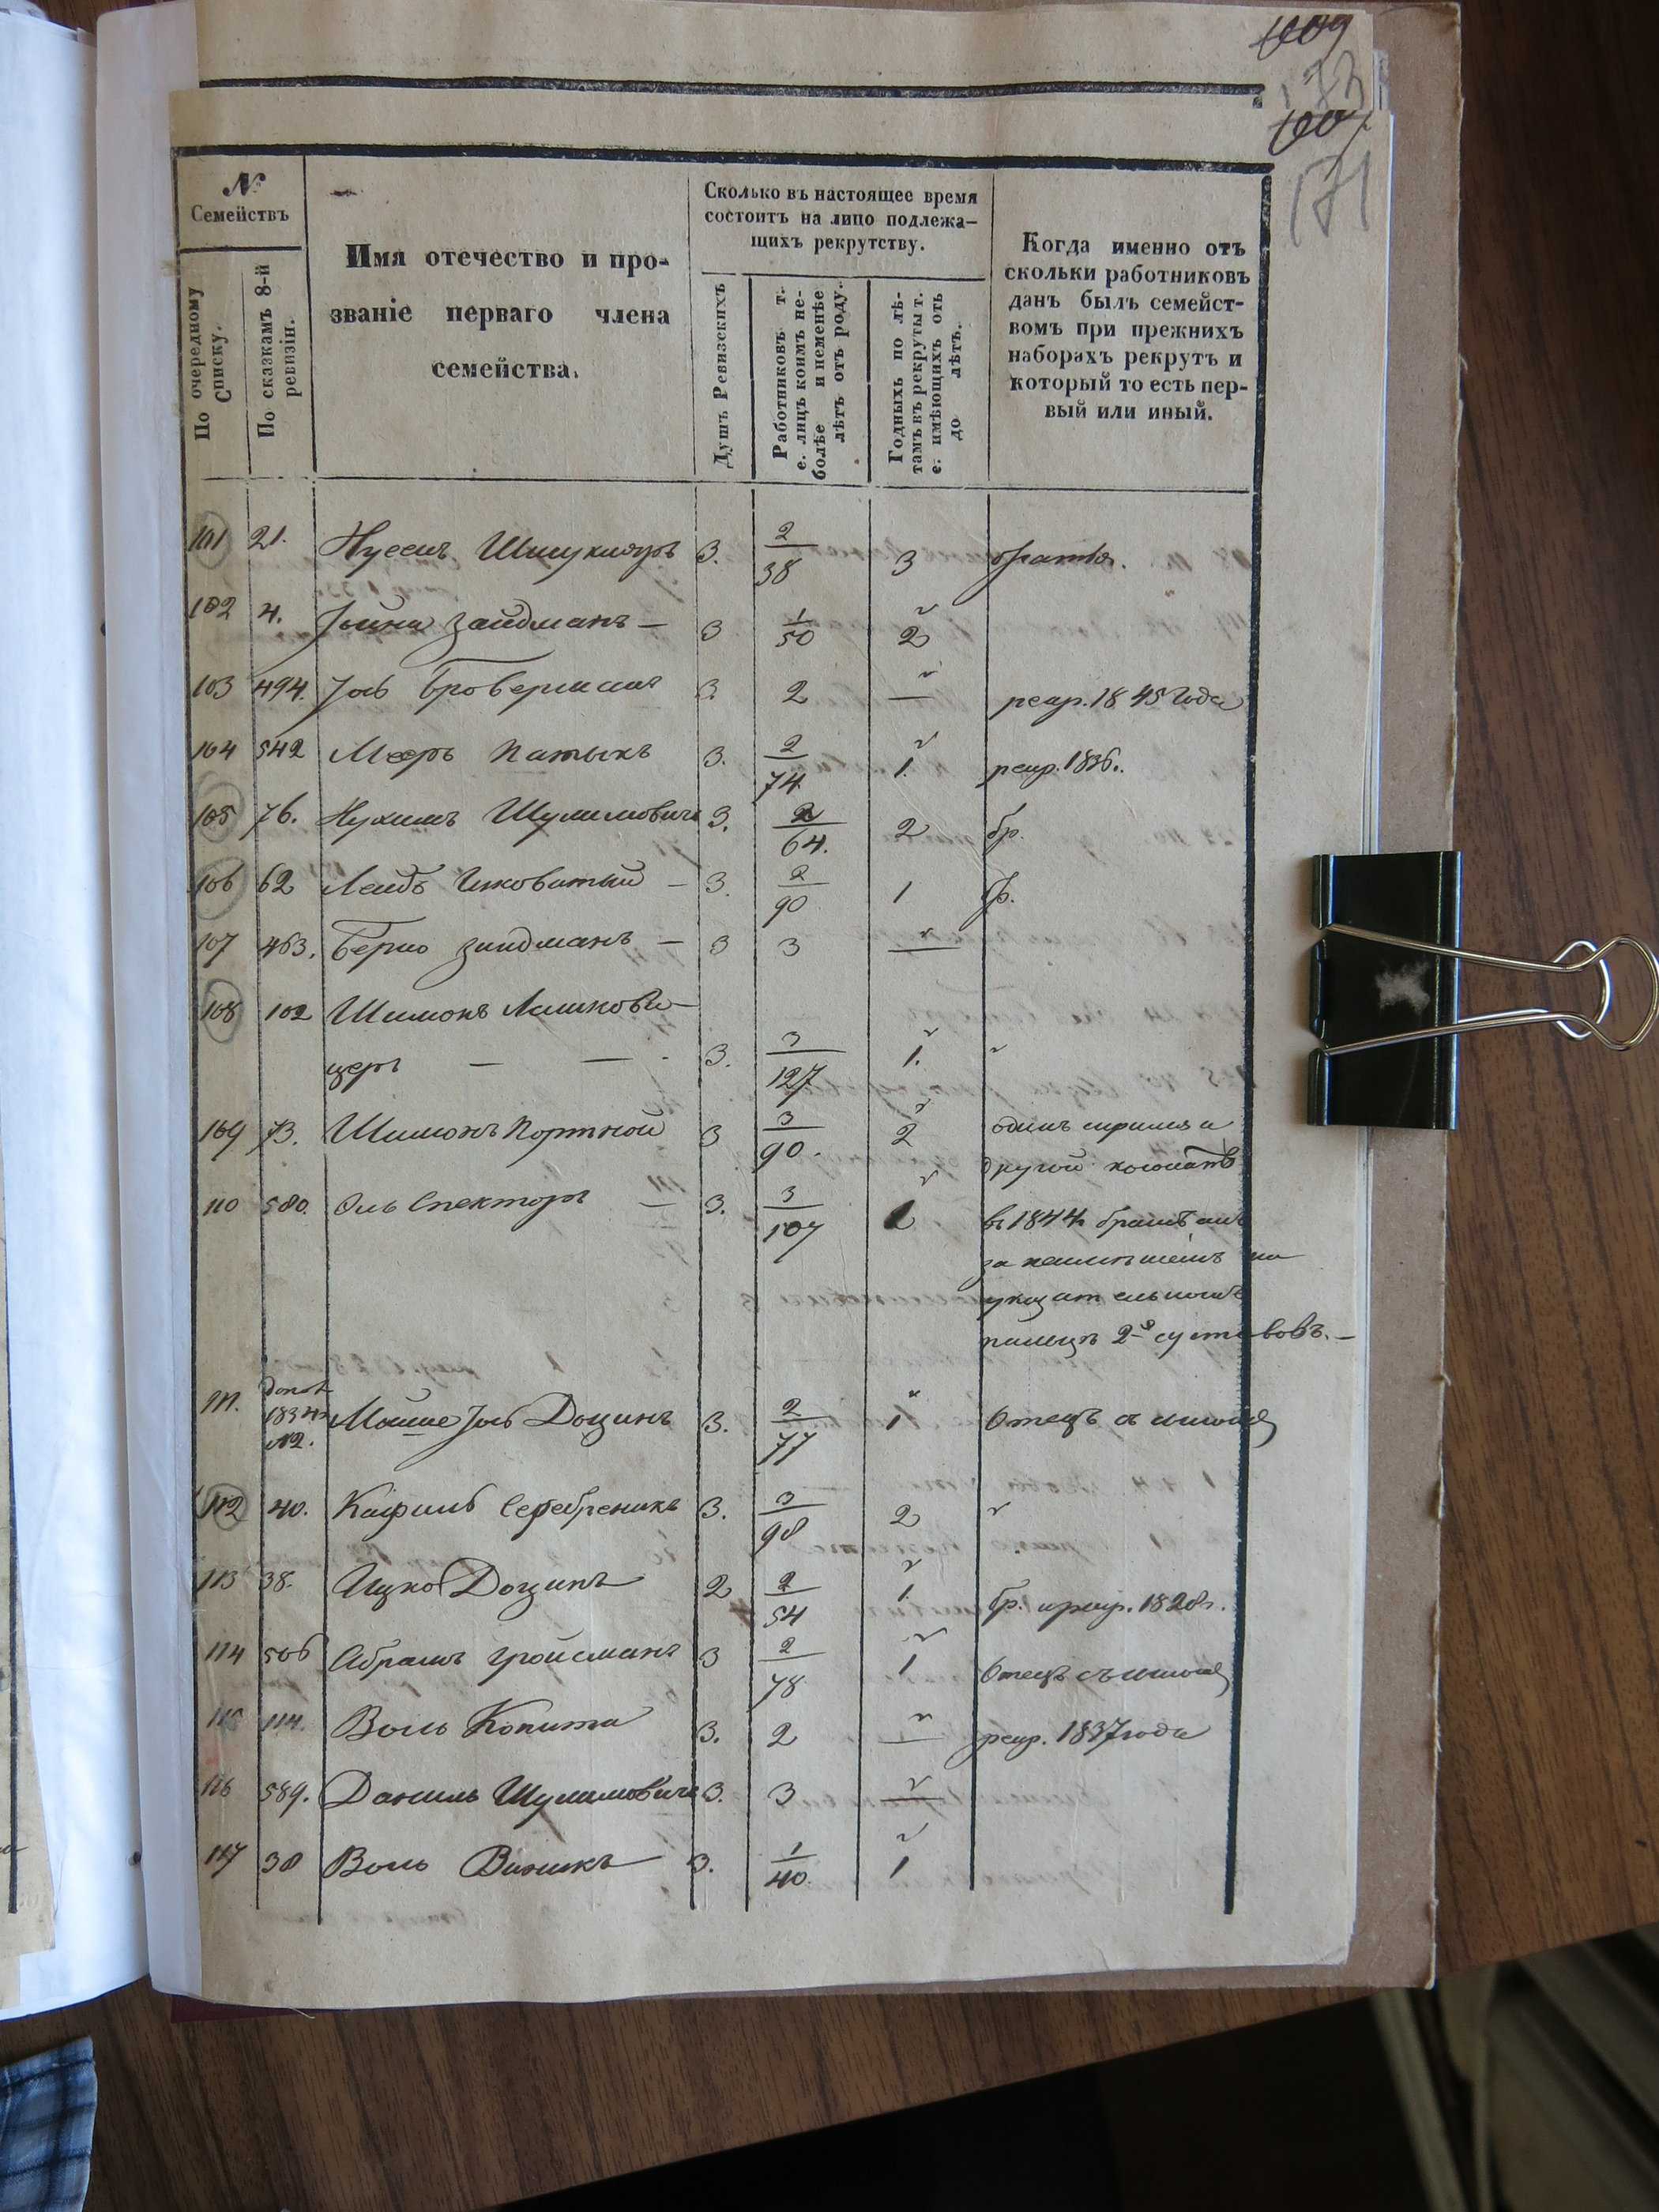 609
173
607
171
№
Семействъ
По очередному Списку.
По сказкамъ 8-й ревизіи.
Имя отечество и про-
званіе перваго члена
семейства.
Сколько въ настоящее время
состоитъ на лицо подлежа-
щихъ рекрутству.
Душъ Ревизскихъ
Работниковъ т.
е. лицъ коимъ не-
болѣе и неменѣе
лѣтъ отъ роду.
Годныхъ по лѣ-
тамъ въ рекруты т.
е. имѣющихъ отъ
до лѣтъ.
Когда именно отъ
скольки работниковъ
данъ былъ семейст-
вомъ при прежнихъ
наборахъ рекрутъ и
который то есть пер-
вый или иный.
101 21. Нусенъ 3. 2/38 3 братья.
102 4. Іойна Зайдманъ — 3 1/50 2
103 494. Іось 3. 2 — рекр. 1845 года
104 542 Мееръ Патыкъ 3. 2/74 1. рекр. 1836.
105 76. Нухимъ Шулимовичъ 3. 2/64. 2 бр.
106 62 Лейбъ — 3. 2/90 1 бр.
107 463. Берко Зайдманъ — 3 3 —
108 102 Шимонъ
церъ — — 3. 3/127 1.
109 73. Шимонъ Портной 3 3/90. 2 одинъ
другой
110 580. Эль Спекторъ — 3. 3/107 1 въ 1844 братъ
за на
палецъ 2-хъ суставовъ. —
111. допол. 1834 №2. Мошке Іось Доцинъ 3. 2/77 1 Отецъ съ сыном
112 40. Кафиль Серебреникъ 3. 3/98 2
113 38. Ицко Доцинъ 2 2/54 1. бр. и рекр. 1828г.
114 506 Абрамъ Гройсманъ 3 2/78 1 Отецъ съ сыном
115 114. Воль Копита 3. 2 — рекр. 1837 года
116 589. Даниль Шулимовичъ 3. 3 —
117 30 Воль Виникъ 3. 1/40. 1